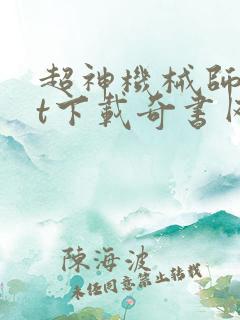 超神機械師
t下載奇書
陳海波
未经同意禁止转载